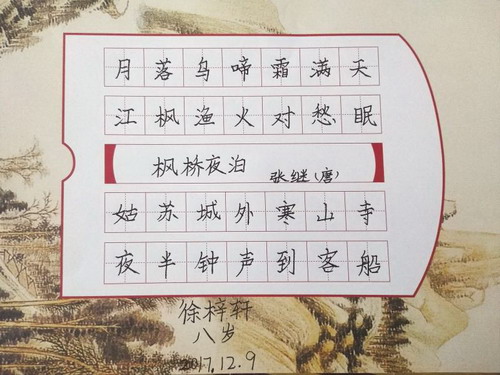 月落鸟啼霜满天
江枫渔火对愁眠
枫桥夜泊 张继(唐)
姑苏城外寒山寺
夜半钟声到客船
徐梓轩
八岁
2017.12.9